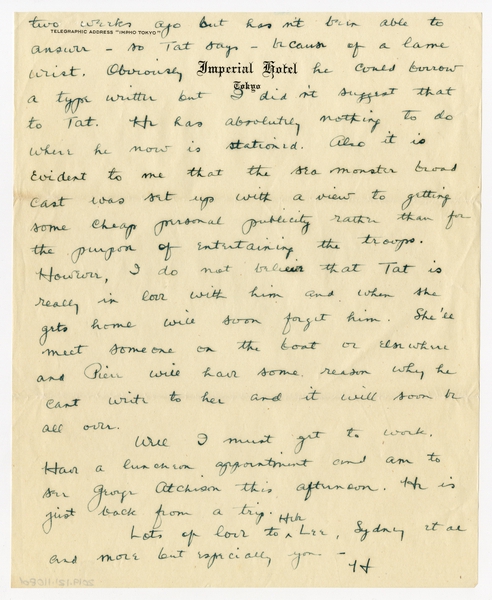 two weeks ago but hasn't been able to
TELEGRAPHIC ADDRESS "IMPHO TOKYO"
answer - so Tat says - because of a lame
wrist. Obviously he could borrow
Imperial Hotel
Tokyo
a type writer but I didn't suggest that
to Tat. He has absolutely nothing to do
where he now is stationed. Also it is
Evident to me that the sea monster broad
cast was set up with a view to getting
some cheap personal publicity rather than for
the purpose of Entertaining the troops.
However, I do not believe that Tat is
really in love with him and when she
gets home will soon forget him. She'll
meet someone on the boat or Elsewhere
and will have some reason why he
cant write to her and it will soon be
all over.
Well I must get to work.
Have a luncheon appointment and am to
see George Atchison this afternoon. He is
just back from a trip.
Lots of love to Herb Lee, Sydney et al
and more but especially you -
H